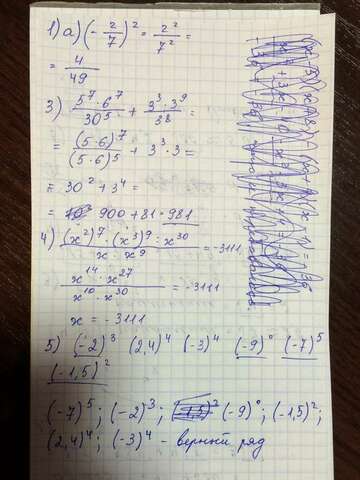 1) а) (- 2/7)² = 2²/7² =
= 4/49
3) 5⁷·6⁷/30⁵ + 3³·3⁹/3⁸ =
= (5·6)⁷/(5·6)⁵ + 3³·3 =
= 30² + 3⁴ =
= 900 + 81 = 981
4) (x²)⁷·(x³)⁹·x³⁰/x·x⁹ = -3111
x¹⁴·x²⁷/x¹⁰·x³⁰ = -3111
x = -3111
5) (-2)³ (2,4)⁴ (-3)⁴ (-9)⁰ (-7)⁵
(-1,5)²
(-7)⁵; (-2)³; (-9)⁰; (-1,5)²;
(2,4)⁴; (-3)⁴ - верный ряд